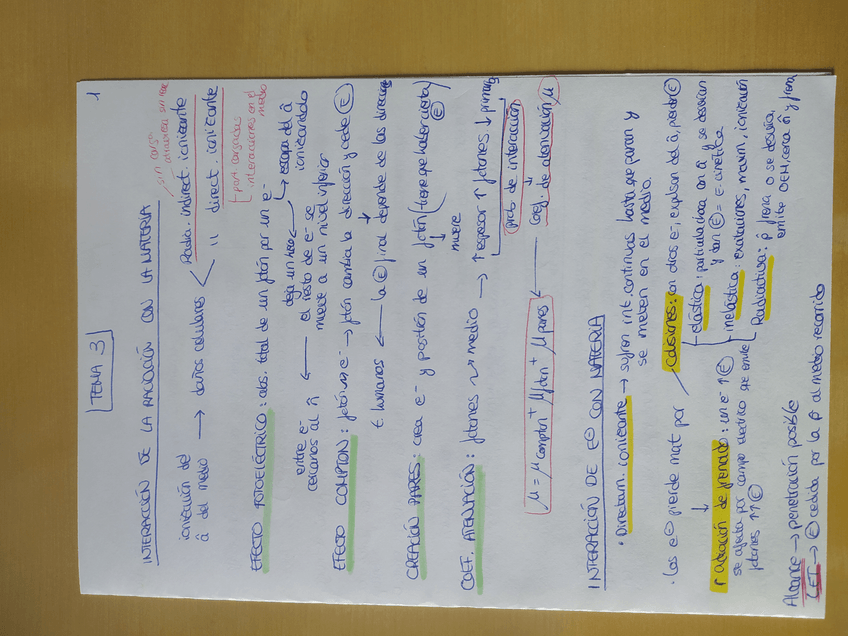 1
TEMA 3
INTERACCIÓN DE LA RADIACIÓN CON LA MATERIA
sin carga
ionización del
â del medio → daños celulares
Radia. indirect. ionizante
" direct. ionizante
part cargadas
interacciones en el
medio
EFECTO FOTOELÉCTRICO: abs. total de un fotón por un e-
deja un hueco ← escapa del â
ionizandolo
entre e-
cercanos al â ← el resto de e- se
mueve a un nivel inferior
EFECTO COMPTON: fotón e- → fotón cambia la dirección y cede E
E humanos ← la E final depende de las direcc
CREACIÓN PARES: crea e- y positrón de un fotón (tiene que haber cierta E)
muere
COEF. ATENUACIÓN: fotones medio → ↑ espesor ↑ fotones ↓ primag
prob de interacción
Coef. de atenuación μ
μ = μ compton + μ foton + μ pares
INTERACCIÓN DE e⊖ CON MATERIA
· Directam. ionizante → sufren int. continuas hasta que paran y
se meten en el medio.
· Los e⊖ pierde mat por
Colisiones: con otros e-, expulsan del â, pierden E
elástica: particula choca con â y se desvían
y tan E = E. cinética
inelástica: exitaciones, maxim, ionización
Radiactiva: p̂ frena o se desvía,
emite OEM, cerca n̂ y frena
radiación de frenado: un e- ↑ E
se afecta por campo electrico que emite
fotones ↑↑ E
Alcance → penetración posible
LET → E cedida por la p̂ al medio recorrido